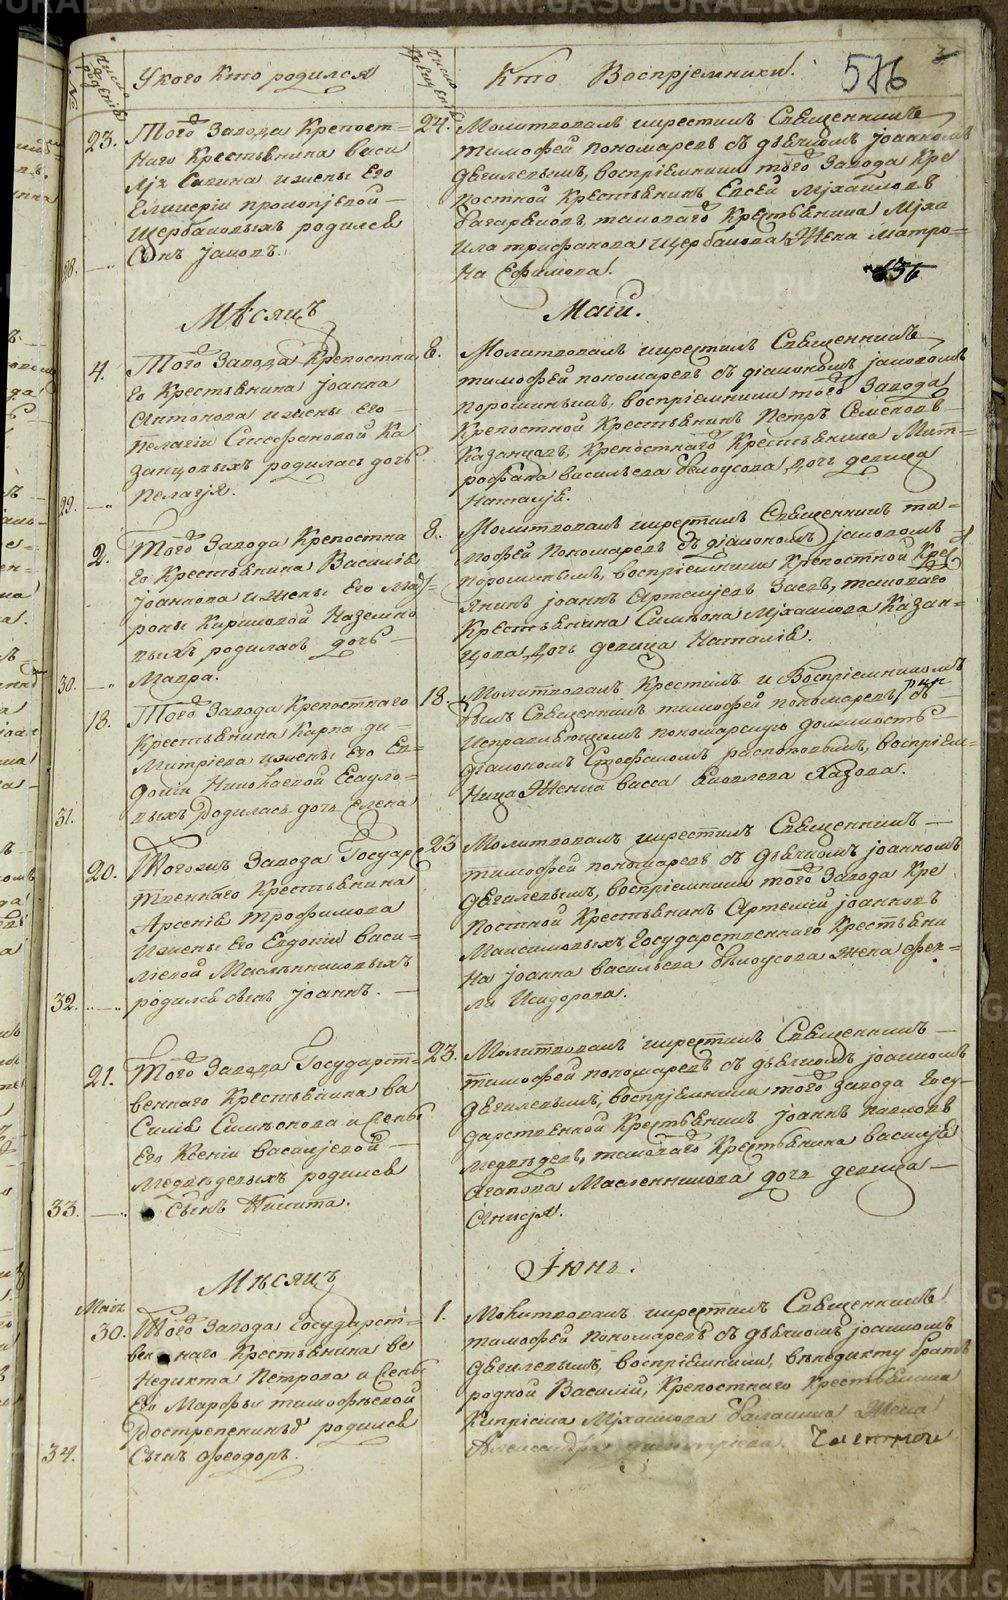 №
Число рожденія
У кого кто родился
Число крещенія
Кто Воспріемники.
586
28.
23.
Того Завода Крепост=
наго Крестьянина Васи
лія Савина и жены Его
Гликеріи Прокопіевой
Щербаковыхъ родился
Сынъ Іаковъ.
24.
Молитвовалъ и крестилъ Священникъ
Тимофей Пономаревъ съ дьячкомъ Іоанномъ
Дягилевымъ, воспріемники того Завода Кре
постной Крестьянинъ Евсей Михайловъ
таковаго Крестьянина Миха
ила Трифанова Щербакова Жена Матро=
на Ефимова.
136
Мѣсяцъ
Маій.
29.
4.
Того Завода Крепостна
го Крестьянина Іоанна
Антонова и жены Его
Пелагіи Стефановой Ка
занцовыхъ родилась дочь
Пелагія.
8.
Молитвовалъ и крестилъ Священникъ
Тимофей Пономаревъ съ діакономъ Іаковомъ
Порошинымъ, воспріемники того Завода
Крепостной Крестьянинъ Петръ Семеновъ
Казанцовъ, Крепостнаго Крестьянина Мит=
рофана Васильева Белоусова, дочь девица
Наталія.
30.
2.
Того Завода Крепостна
го Крестьянина Василія
Іоаннова и жены Его Мат=
роны Кириловой Наземно
выхъ родилась дочь
Мавра.
8.
Молитвовалъ и крестилъ Священникъ Ти=
мофей Пономаревъ съ діакономъ Іаковомъ
Порошинымъ, воспріемники Крепостной Крес
янинъ Іоаннъ Артемьевъ Заевъ, таковаго
Крестьянина Симеона Михайлова Казан=
цова, дочь девица Наталія.
31.
18.
Того Завода Крепостнаго
Крестьянина Карпа Ди=
митріева и жены Его Ев=
докіи Николаевой Есауло=
выхъ родилась дочь Елена
18.
Молитвовалъ Крестилъ и Воспріемникомъ
былъ Священникъ Тимофей Пономаревъ съ
исправляющимъ пономарскую должность
діакономъ Стефаномъ Распоповымъ, воспріем=
ница Женка Васса Яковлева Хазова.
32.
20.
Тогожъ Завода Государс
твеннаго Крестьянина
Арсенія Трофимова
и жены Его Евдокіи Васи=
ліевой Масленниковыхъ
родился сынъ Іоаннъ.
23
Молитвовалъ и крестилъ Священникъ
Тимофей Пономаревъ съ дьячкомъ Іоанномъ
Дягилевымъ, воспріемники того Завода Кре
постной Крестьянинъ Артемій Іоанновъ
Максимовыхъ, Государственнаго Крестьяни
на Іоанна Васильева Белоусова Жена Фек=
ла Исидорова.
33.
21.
Того Завода Государст=
веннаго Крестьянина Ва
силія Симеонова и жены
Его Ксеніи Васильевой
Медведевыхъ родился
Сынъ Никита.
23.
Молитвовалъ и крестилъ Священникъ
Тимофей Пономаревъ съ дьячкомъ Іоанномъ
Дягилевымъ, воспріемники того Завода Госу=
дарственной Крестьянинъ Іоаннъ Павловъ
Медведевъ, таковаго Крестьянина Василья
Агапова Масленникова дочь девица
Анисія.
Мѣсяцъ
Іюнь.
34.
Маія
30.
Того Завода Государст=
веннаго Крестьянина Ве
недикта Петрова и жены
Его Марфы Тимофеевой
родился
Сынъ Феодоръ.
1.
Молитвовалъ и крестилъ Священникъ
Тимофей Пономаревъ съ дьячкомъ Іоанномъ
Дягилевымъ, воспріемники, Венедикту братъ
родной Василій, Крепостнаго Крестьянина
Кипріана Михайлова Балакина Жена
Александра Димитріева.